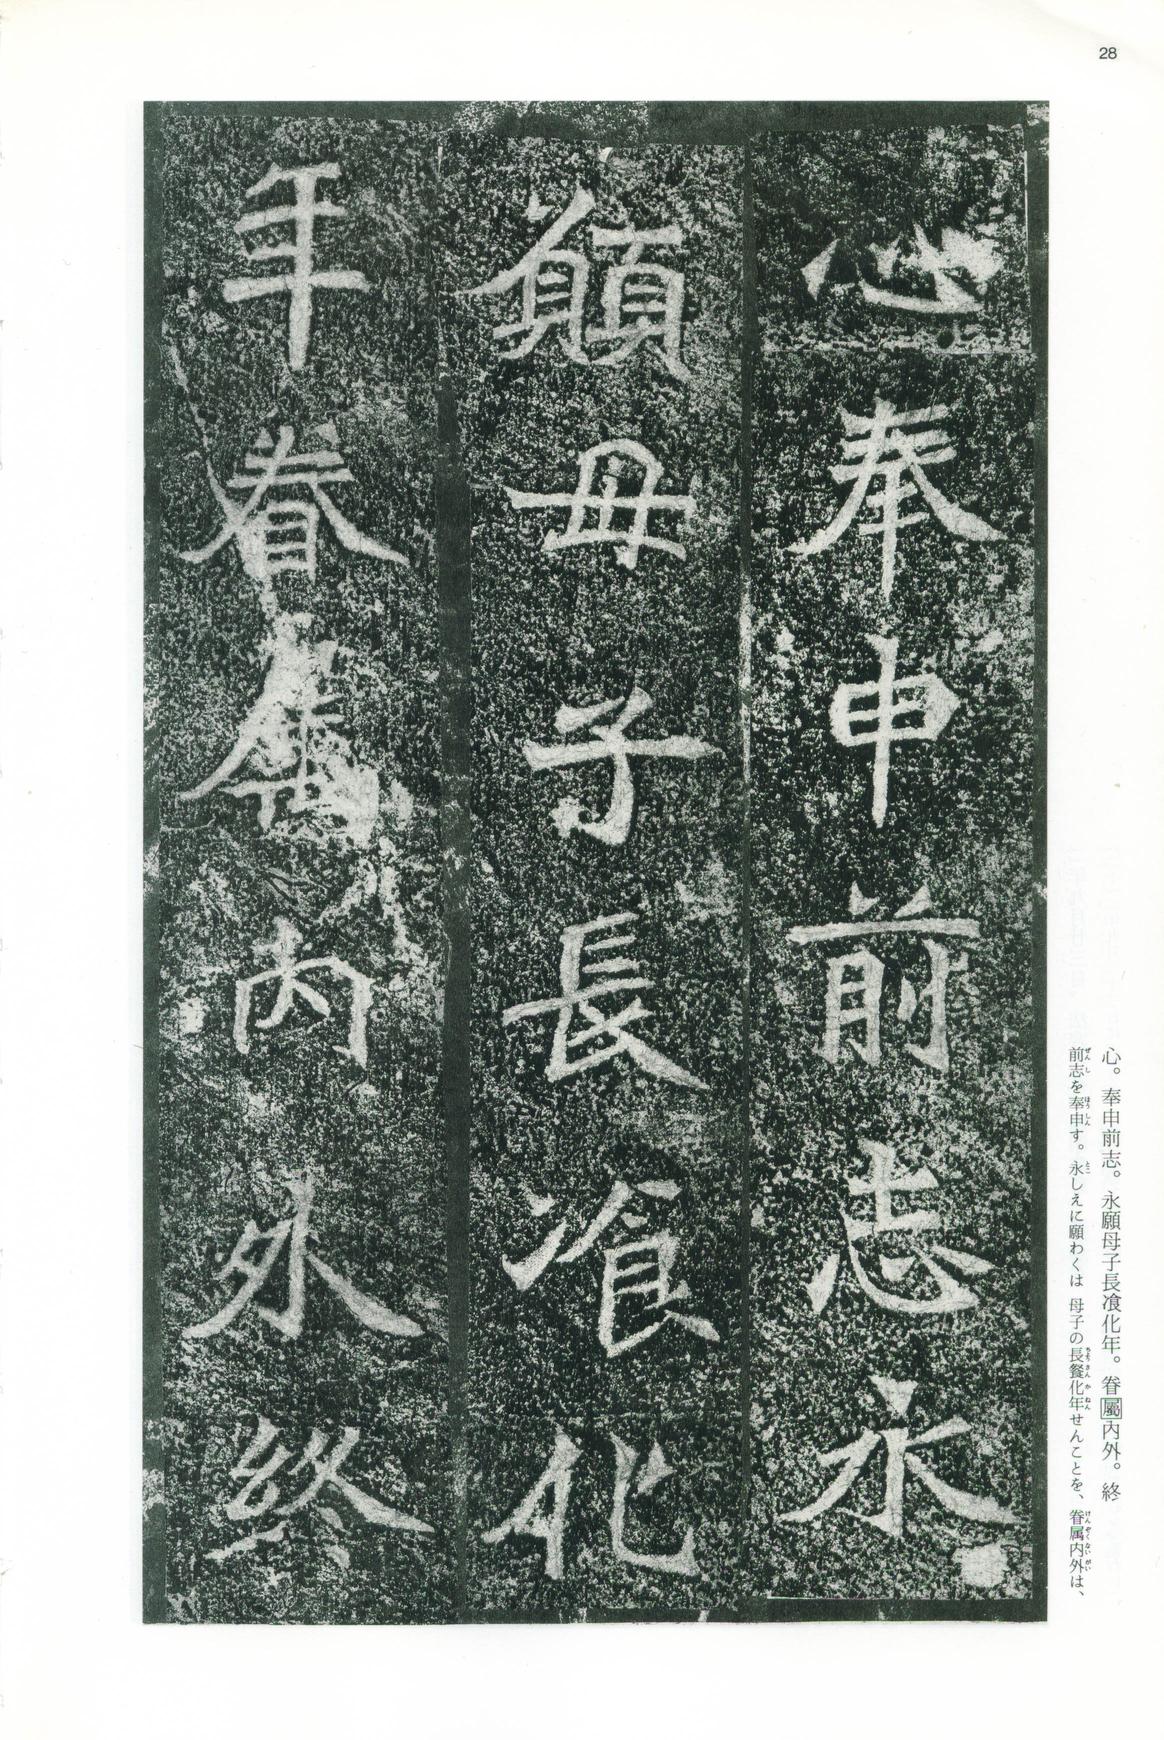 28
心奉申前志永
願母子長飡化
年眷屬内外終
心。奉申前志。永願母子長飡化年。眷屬内外。終
前志を奉申す。永しえに願わくは 母子の長餐化年せんことを、眷属内外は、